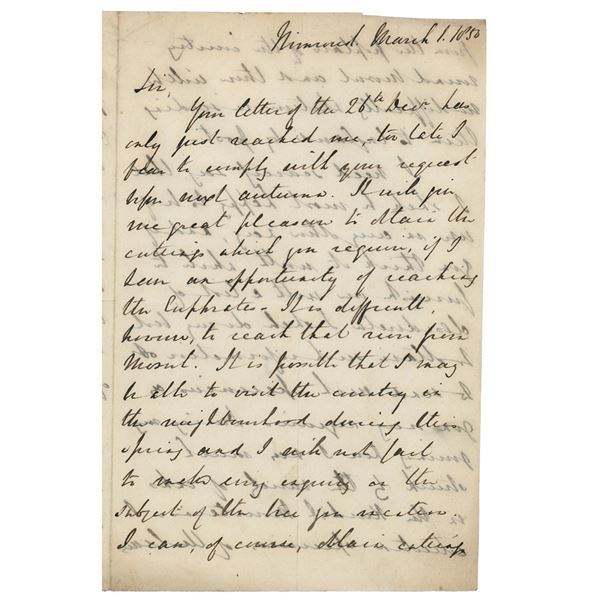 Nimroud. March 1. 1850
Sir,
Your letter of the 26th Decr. has
only just reached me, too late I
fear to comply with your request
upon next autumn. It will give
me great pleasure to obtain the
cuttings which you require, if I
have an opportunity of reaching
the Euphrates. It is difficult,
however, to reach that river from
Mosul. It is possible that I may
be able to visit the country in
the neighbourhood during this
spring and I will not fail
to make every enquiry on the
subject of the tree you mention.
I can, of course, obtain cuttings